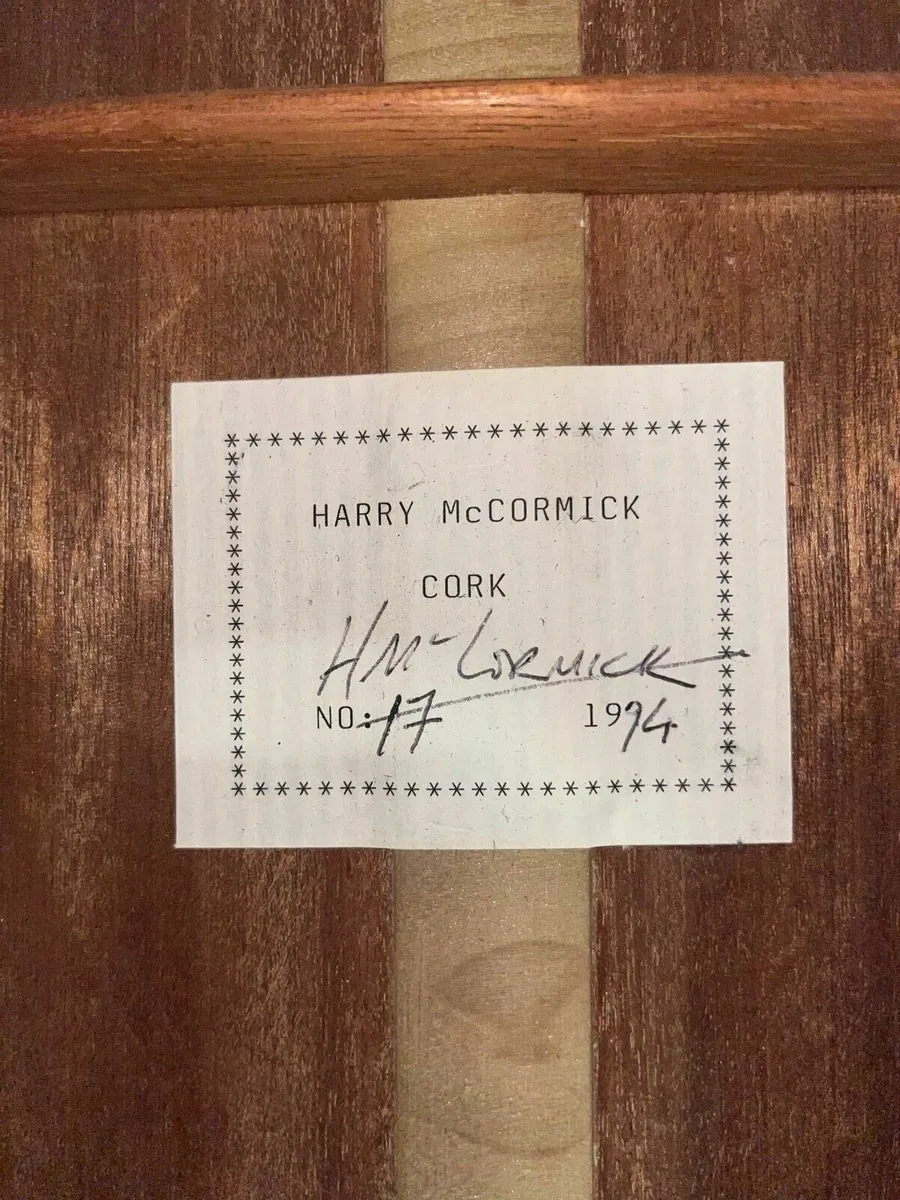 HARRY McCORMICK
CORK
H McCORMICK
NO: 17 1994